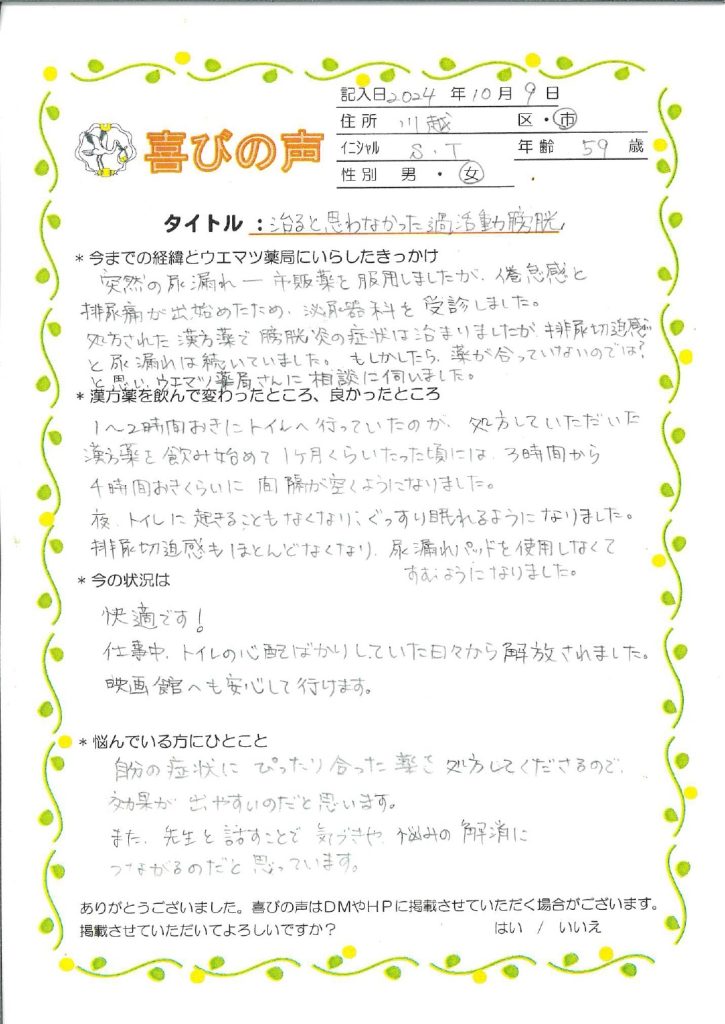 記入日2024 年 10月 9 日
喜びの声
住所 川越 区・市
イニシャル S.T 年齢 59 歳
性別 男・女
タイトル:治ると思わなかった過活動膀胱
*今までの経緯とウエマツ薬局にいらしたきっかけ
突然の尿漏れ一市販薬を服用しましたが、倦怠感と
排尿痛が出始めたため、泌尿器科を受診しました。
処方された漢方薬で膀胱炎の症状は治まりましたが、排尿切迫感
と尿漏れは続いていました。もしかしたら、薬が合っていないのでは?
と思い、ウエマツ薬局さんに相談に伺いました。
*漢方薬を飲んで変わったところ、良かったところ
1〜2時間おきにトイレへ行っていたのが、処方していただいた
漢方薬を飲み始めて1ヶ月くらいたった頃には、3時間から
4時間おきくらいに間隔が空くようになりました。
夜、トイレに起きることもなくなり、ぐっすり眠れるようになりました。
排尿切迫感もほとんどなくなり、尿漏れパッドを使用しなくて
すむようになりました。
*今の状況は
快適です!
仕事中、トイレの心配ばかりしていた日々から解放されました。
映画館へも安心して行けます。
*悩んでいる方にひとこと
自分の症状にぴったり合った薬を処方してくださるので、
効果が出やすいのだと思います。
また、先生と話すことで気づきや、悩みの解消に
つながるのだと思っています。
ありがとうございました。喜びの声はDMやHPに掲載させていただく場合がございます。
掲載させていただいてよろしいですか? はい / いいえ